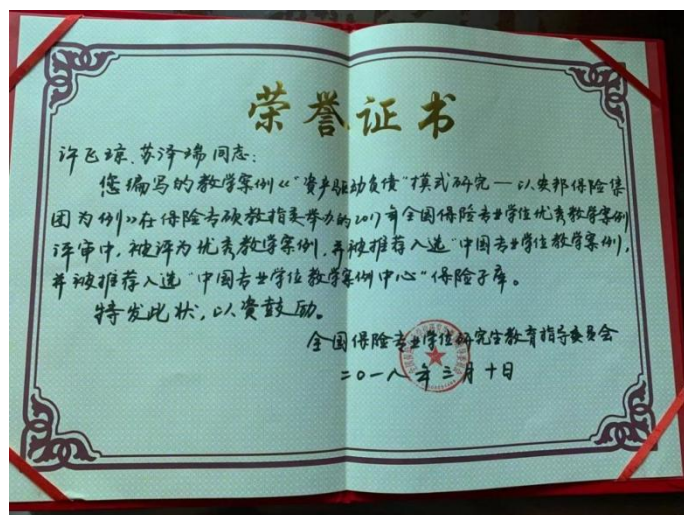 荣誉证书
许飞琼、苏泽瑞同志：
您编写的教学案例《“资产驱动负债”模式研究—以安邦保险集
团为例》在保险专硕教指委举办的2017年全国保险专业学位优秀教学案例
评审中，被评为优秀教学案例，并被推荐入选“中国专业学位教学案例，
并被推荐入选“中国专业学位教学案例中心”保险子库。
特发此状，以资鼓励。
全国保险专业学位研究生教育指导委员会
二〇一八年三月十日